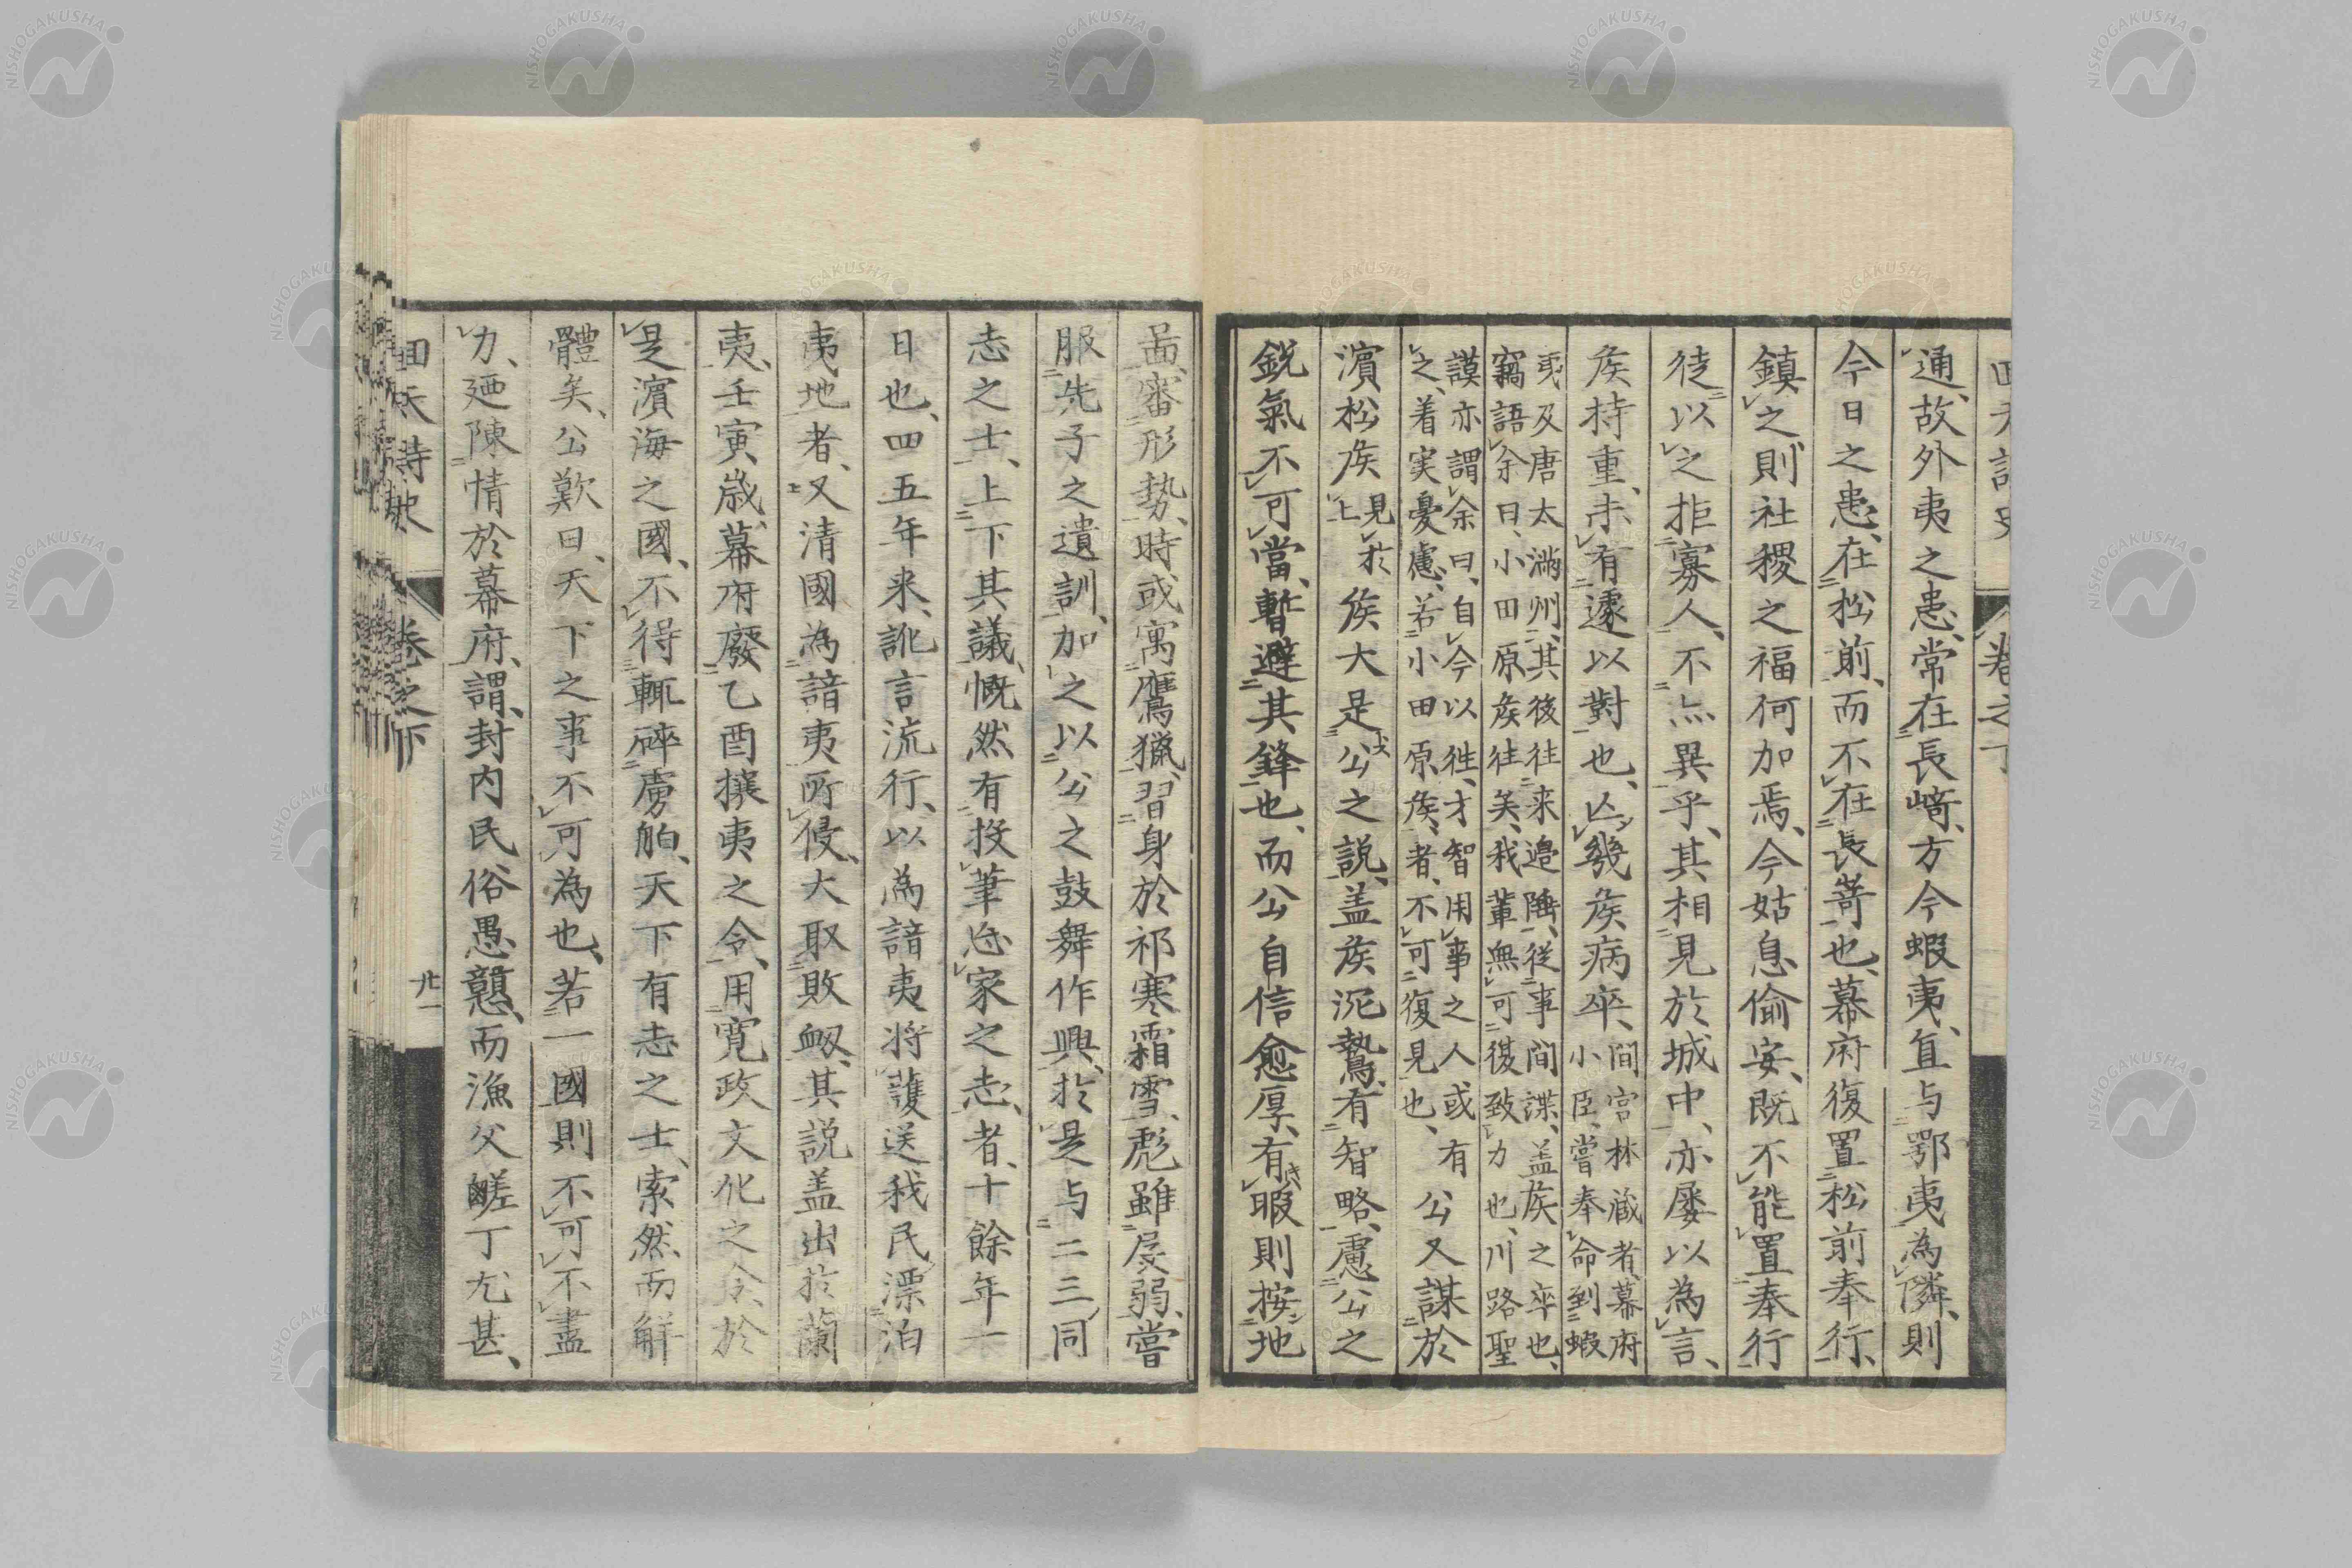 通、故外夷之患、常在長﨑、方今蝦夷、直与鄂夷為隣、則
今日之患、在松前、而不在長嵜也、幕府復置松前奉行、
鎮之則社稷之福何加焉、今姑息偷安、既不能置奉行
徒以之拒寡人、不亦異乎、其相見於城中、亦屡以為言、
矦持重、未有遽以對也、亾幾矦病卒、間宮林蔵者、幕府
小臣、嘗奉命到蝦
夷及唐太滿州、其後往来邉陲、従事間諜、盖矦之卒也、
竊語余曰、小田原矦往矣、我輩無可復致力也、川路聖
謨亦謂余曰、自今以徃、才智用事之人或有
之、着実憂慮、若小田原矦、者、不可復見也、
公又謀於
濱松矦見於上矦大是公之説、盖矦沉鷙、有智略、慮公之
鋭氣不可當、暫避其鋒也、而公自信愈厚、有暇則按地
啚、審形勢、時或寓鷹獵、習身於祁寒霜雪、彪雖孱弱、嘗
服先子之遺訓、加之以公之鼓舞作興、於是与二三同
志之士、上下其議、慨然有投筆忘家之志、者、十餘年一
日也、四五年来、訛言流行、以為諳夷将護送我民漂泊
夷地者、又清國為諳夷所侵、大取敗衂、其説盖出於蘭
夷、壬寅歳、幕府廢乙酉攘夷之令、用寛政文化之令、於
是濱海之國、不得輒碎虜舶、天下有志之士、索然而觧
體矣、公歎曰、天下之事不可為也、若一國則不可不盡
力、廼陳情於幕府、謂、封内民俗愚戇、而漁父嵯丁尤甚、
回天詩史
卷之下
廿一
回天詩史
卷之下
NISHOGAKUSHA